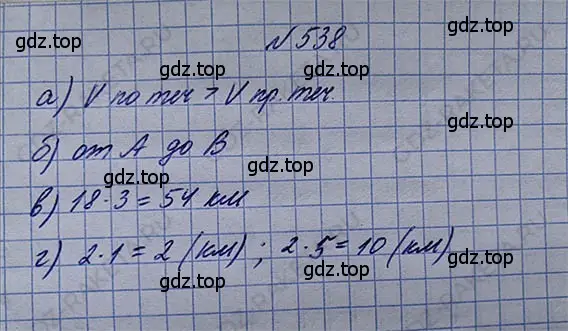 №538
gdz.top gdz.top
gdz.top
а) V по теч > V пр. теч.
gdz.top
б) от А до В
gdz.top gdz.top
в) 18·3=54 км
gdz.top
г) 2·1=2 (км); 2·5=10 (км)
gdz.top gdz.top
gdz.top